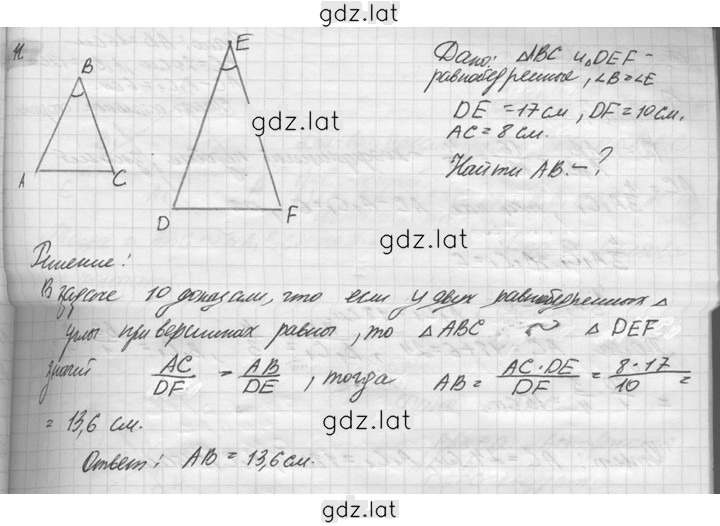 gdz.lat
11.
B
A
C
E
D
F
gdz.lat
Дано: △ABC и △DEF –
равнобедренные, ∠B=∠E
DE = 17 см, DF = 10 см,
AC = 8 см.
Найти AB. – ?
gdz.lat
Решение:
В задаче 10 доказали, что если у двух равнобедренных △
углы при вершинах равны, то △ABC ~ △DEF
значит AC/DF = AB/DE, тогда AB = AC·DE/DF = 8·17/10 =
gdz.lat
= 13,6 см.
Ответ: AB = 13,6 см.
gdz.lat